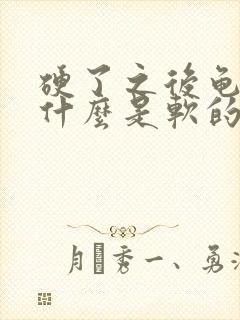 硬了之後龟
什麼是軟的
月秀一、勇